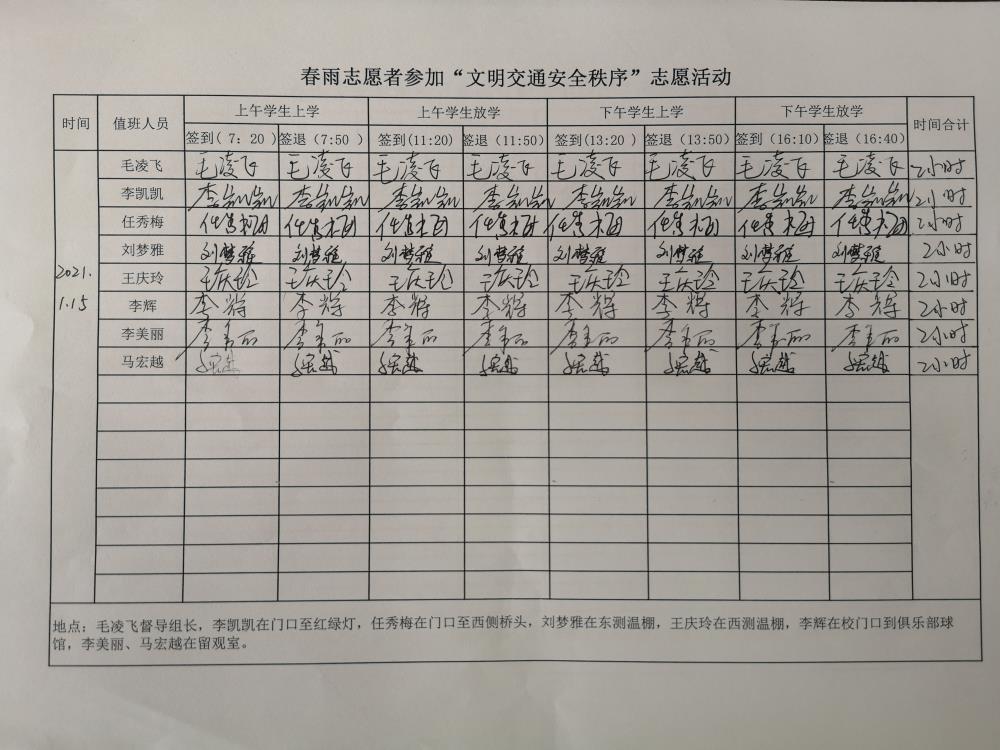 春雨志愿者参加“文明交通安全秩序”志愿活动
时间 值班人员 上午学生上学 上午学生放学 下午学生上学 下午学生放学 时间合计
签到(7: 20) 签退(7:50) 签到(11:20) 签退(11:50) 签到(13:20) 签退(13:50) 签到(16:10) 签退(16:40)
2021.
1.15
毛凌飞 毛凌飞 毛凌飞 毛凌飞 毛凌飞 毛凌飞 毛凌飞 毛凌飞 毛凌飞 2小时
李凯凯 李凯凯 李凯凯 李凯凯 李凯凯 李凯凯 李凯凯 李凯凯 李凯凯 2小时
任秀梅 任秀梅 任秀梅 任秀梅 任秀梅 任秀梅 任秀梅 任秀梅 任秀梅 2小时
刘梦雅 刘梦雅 刘梦雅 刘梦雅 刘梦雅 刘梦雅 刘梦雅 刘梦雅 刘梦雅 2小时
王庆玲 王庆玲 王庆玲 王庆玲 王庆玲 王庆玲 王庆玲 王庆玲 王庆玲 2小时
李辉 李辉 李辉 李辉 李辉 李辉 李辉 李辉 李辉 2小时
李美丽 李美丽 李美丽 李美丽 李美丽 李美丽 李美丽 李美丽 李美丽 2小时
马宏越 马宏越 马宏越 马宏越 马宏越 马宏越 马宏越 马宏越 马宏越 2小时
地点：毛凌飞督导组长，李凯凯在门口至红绿灯，任秀梅在门口至西侧桥头，刘梦雅在东测温棚，王庆玲在西测温棚，李辉在校门口到俱乐部球
馆，李美丽、马宏越在留观室。